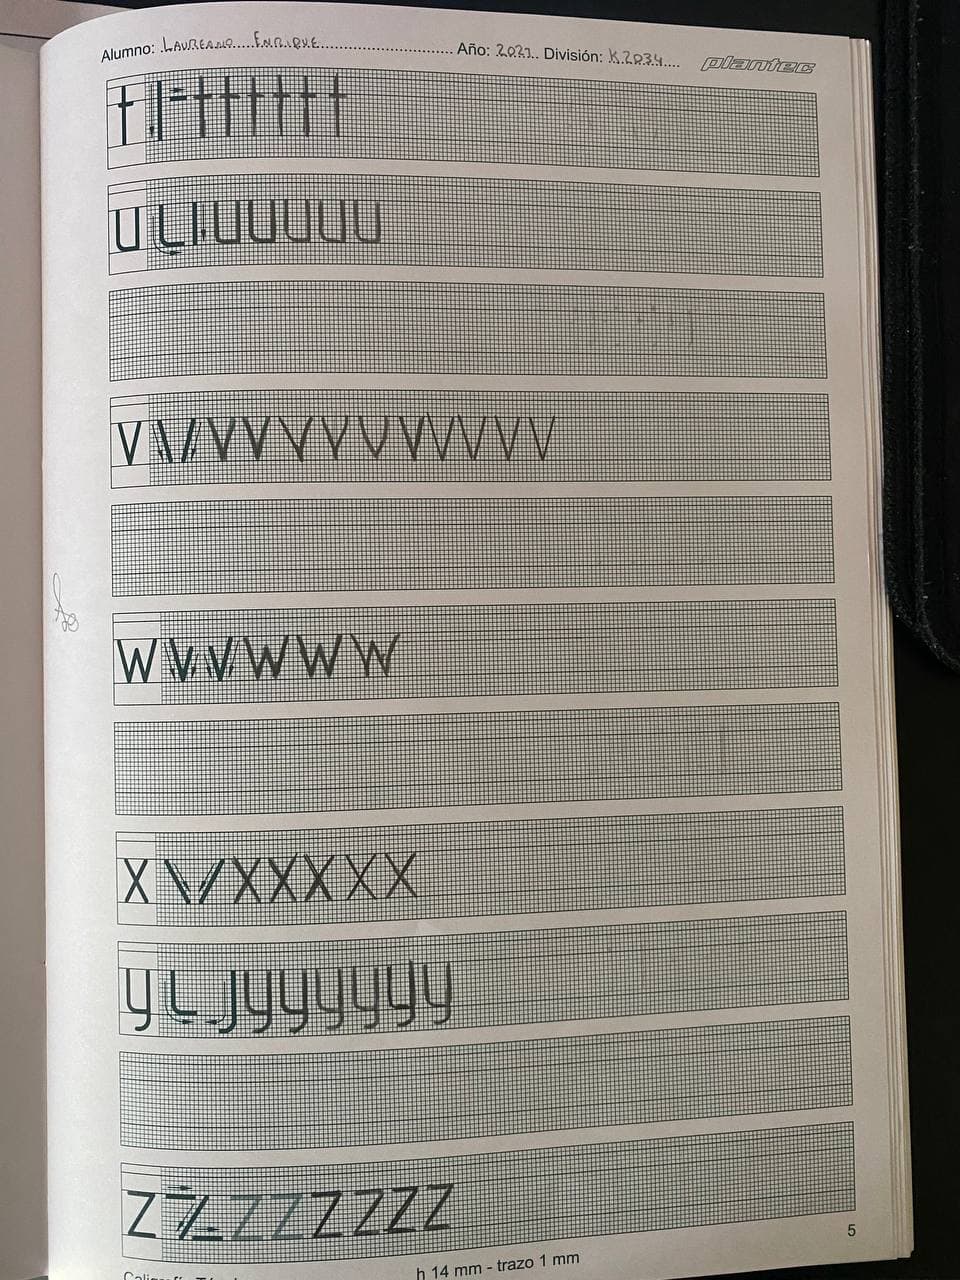 Alumno: LAUREANO ENRIQUE Año: 2021 División: K2034 plantec
t t t t t t t
u u u u u u
v v v v v v v v v v v
w w w w
x x x x x x
y y y y y y y
z z z z z z z
5
h 14 mm - trazo 1 mm